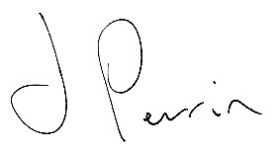 J Perrin